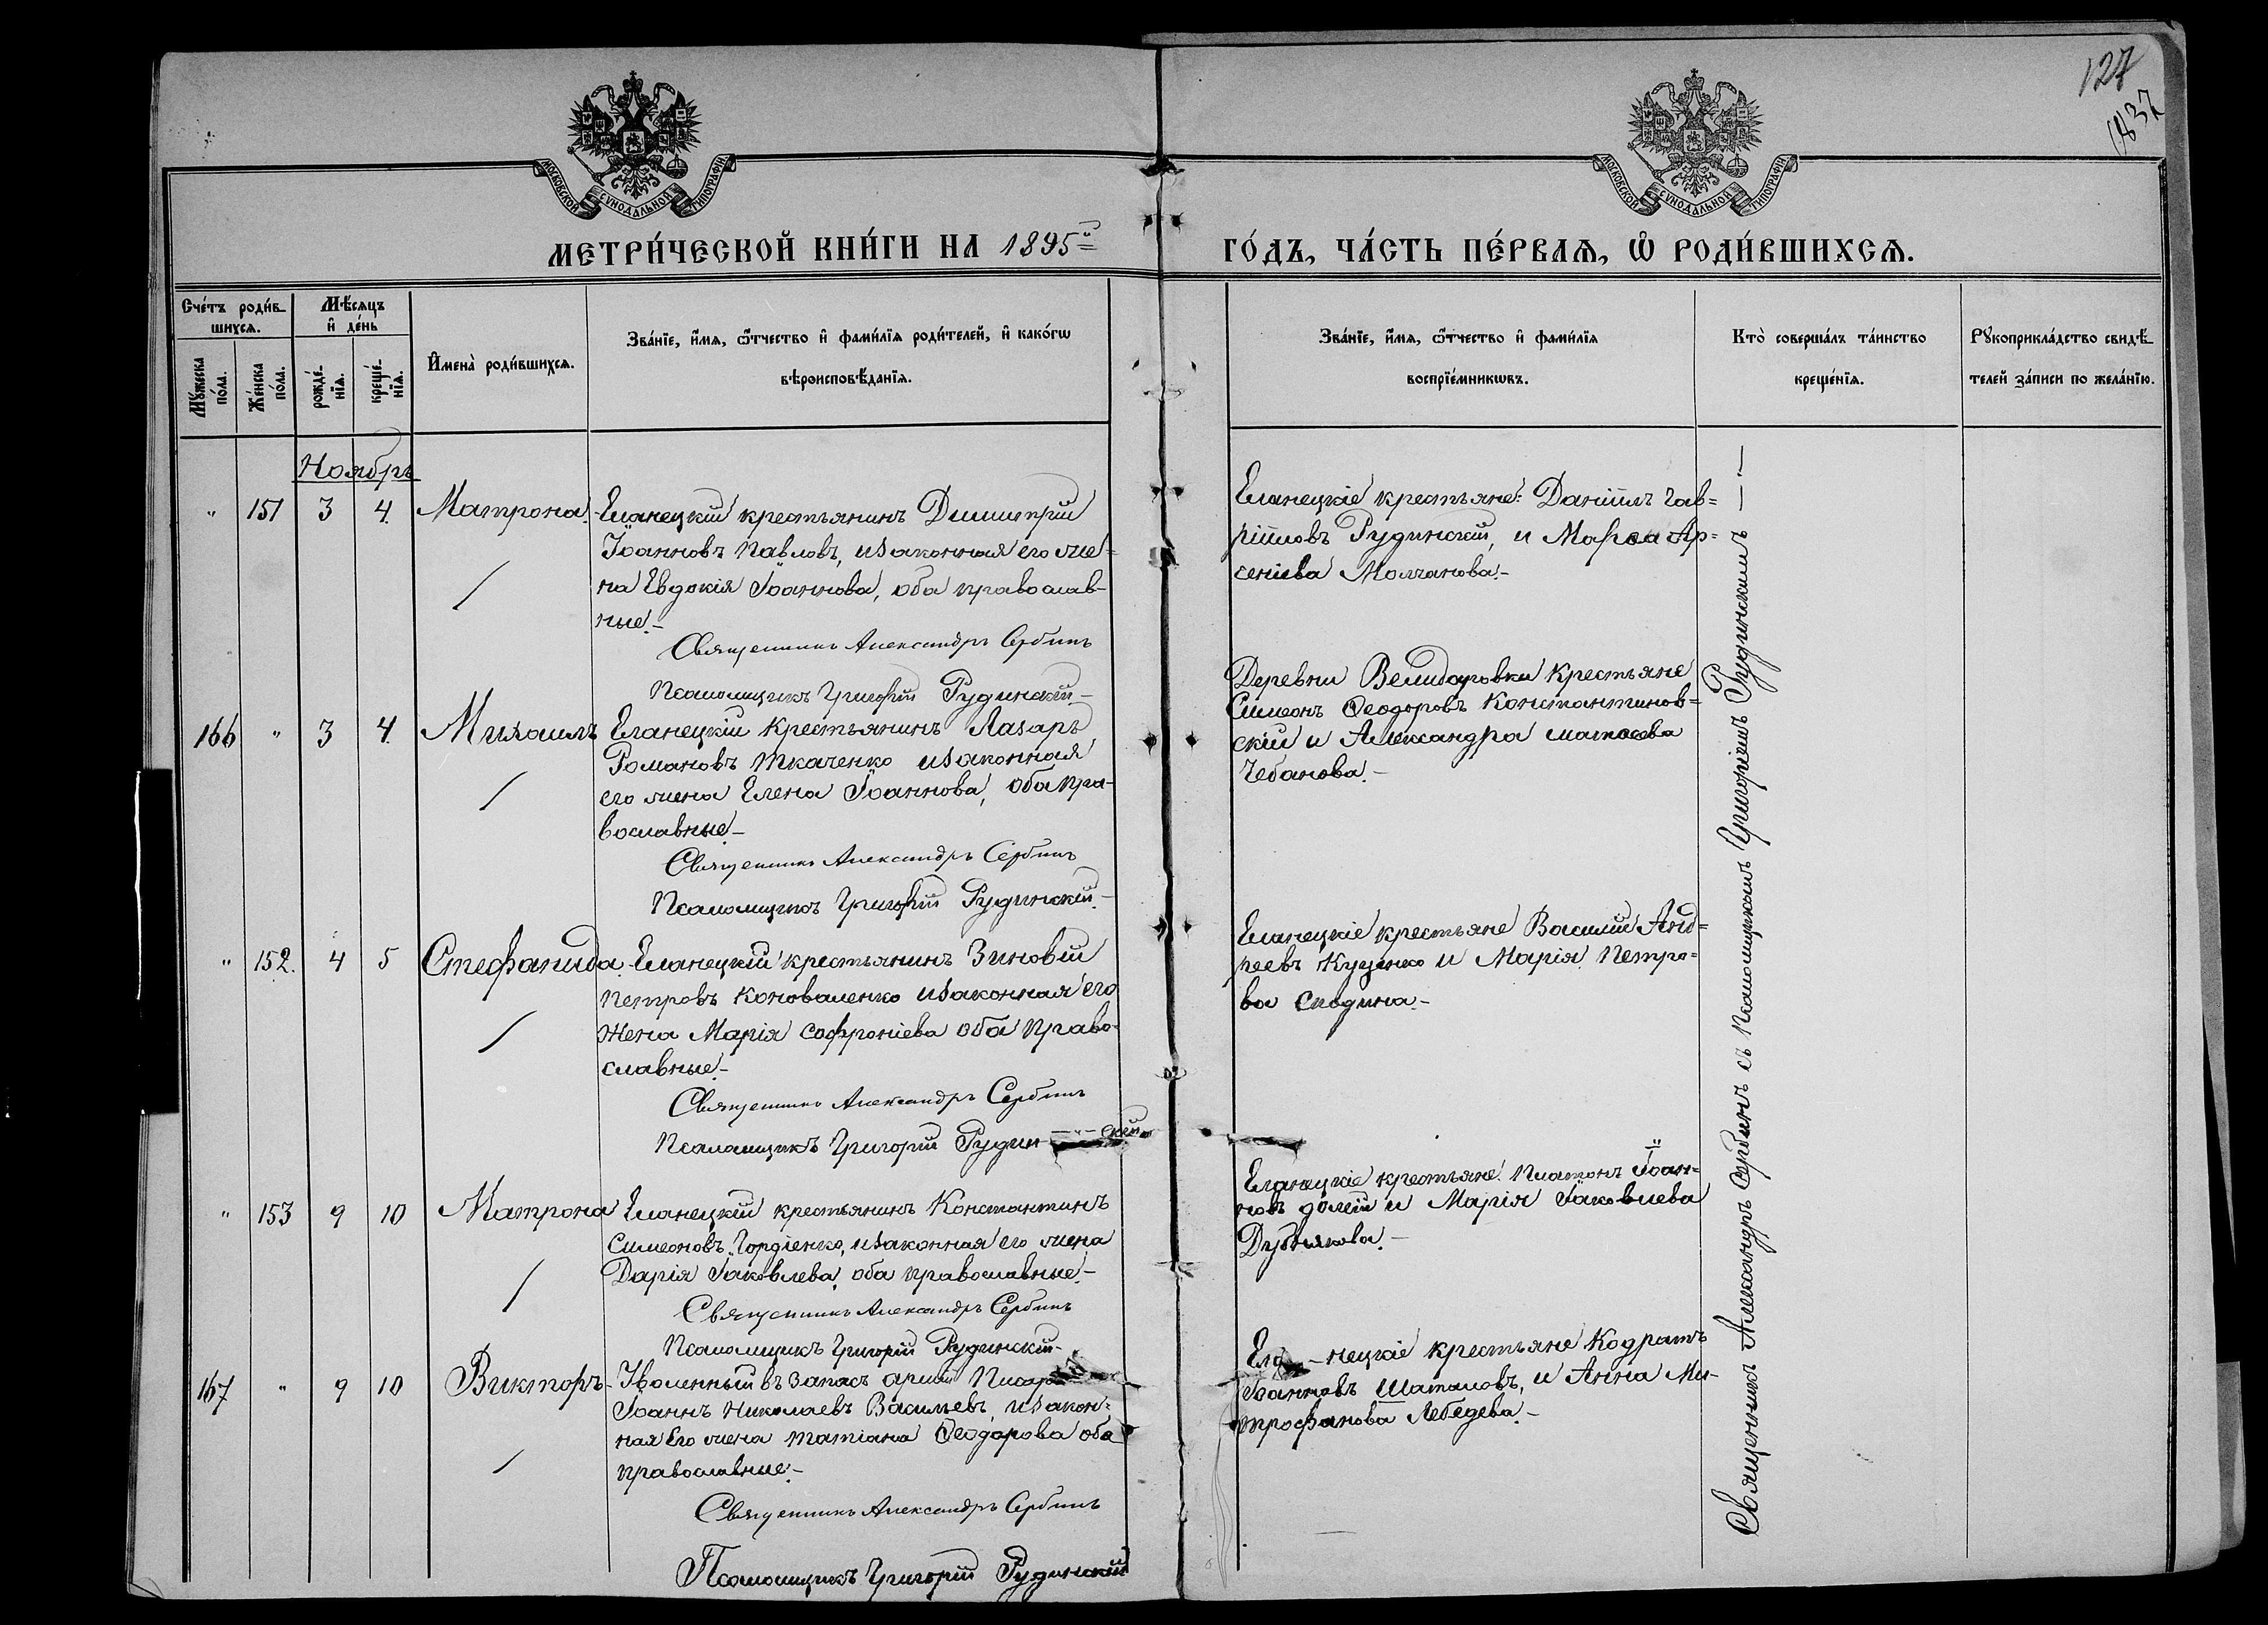 127
1837
МОСКОВСКОЙ СѴНОДАЛЬНОЙ ТИПОГРАФІИ
МОСКОВСКОЙ СѴНОДАЛЬНОЙ ТИПОГРАФІИ
МЕТРИ́ЧЕСКОЙ КНИ́ГИ НА 1895й
ГО́ДЪ, ЧА́СТЬ ПЕ́РВАѦ, Ѽ РОДИ́ВШИХСѦ.
Сче́тъ роди́в-
шихсѧ.
Мꙋ́жеска
по́ла.
Же́нска
по́ла.
Мѣ́сѧцъ
и҆ де́нь
рожде́-
нїѧ.
креще́-
нїѧ.
И҆мена̀ роди́вшихсѧ.
Зва́нїе, и҆́мѧ, ѻ҆́тчество и҆ фами́лїѧ роди́телей, и҆ како́гѡ
вѣроисповѣ́данїѧ.
Зва́нїе, и҆́мѧ, ѻ҆́тчество и҆ фами́лїѧ
воспрїе́мникѡвъ.
Кто̀ соверша́лъ та́инство
креще́нїѧ.
Рꙋкоприкла́дство свидѣ́-
телей за́писи по жела́нїю.
Ноябрь
" 151 3 4. Матрона.
Еланецкій крестьянинъ Димитрій
Іоанновъ Павловъ, и законная его же-
на Евдокія Іоаннова, оба православ-
ные.-
Священникъ Александръ Сербинъ
Псаломщикъ Григорій Рудинскій.-
Еланецкіе крестьяне: Даніилъ Гав-
ріиловъ Рудинскій, и Марѳа Ар-
сеніева Молчанова.-
166 " 3 4. Михаилъ
Еланецкій крестьянинъ Лазарь
Романовъ Ткаченко и законная
его жена Елена Іоаннова, оба пра-
вославные.-
Священникъ Александръ Сербинъ
Псаломщикъ Григорій Рудинскій.-
Деревни крестьяне
Симеонъ Ѳеодоровъ Константинов-
скій и Александра Матѳеева
Чебанова.-
" 152. 4 5 Стефанида.
Еланецкій крестьянинъ Зиновій
Петровъ Коноваленко и законная его
жена Марія Софроніева оба право-
славные.-
Священникъ Александръ Сербинъ
Псаломщикъ Григорій Рудин-"-скій
Еланецкіе крестьяне Василій Анд-
реевъ Куценко и Марія Петро-
ва
" 153 9 10 Матрона
Еланецкій крестьянинъ Константинъ
Симеоновъ Гордіенко, и законная его жена
Дарія Іаковлева, оба православные.-
Священникъ Александръ Сербинъ
Псаломщикъ Григорій Рудинскій.-
Еланецкіе крестьяне: Платонъ Іоан-
новъ и Марія Іаковлева
.-
167 " 9 10 Викторъ.
Уволенный въ запасъ арміи Писарь
Іоаннъ Николаевъ Васильевъ, и закон-
ная его жена Татіана Ѳеодорова оба
православные.-
Священникъ Александръ Сербинъ
Псаломщикъ Григорій Рудинскій
Ела-нецкіе крестьяне Кодратъ
Іоанновъ Шаталовъ, и Анна Ми-
трофанова Лебедева.-
Священникъ Александръ Сербинъ съ Псаломщикомъ Григоріемъ Рудинскимъ —